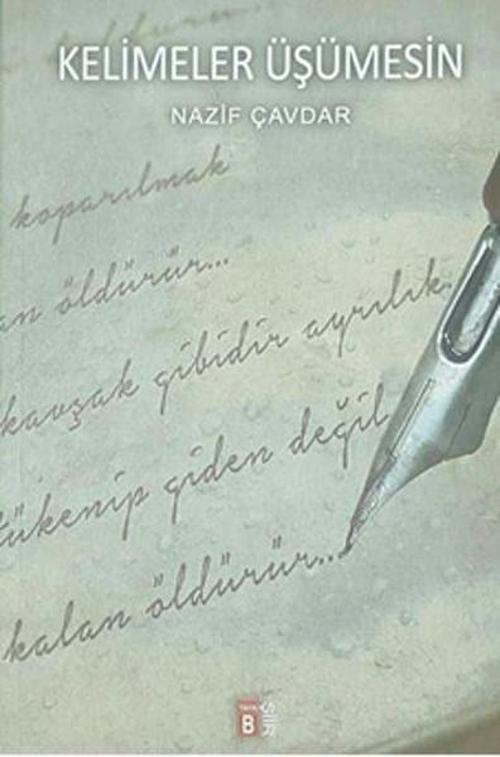 KELİMELER ÜŞÜMESİN
NAZİF ÇAVDAR
koparılmak
an öldürür...
kavşak gibidir ayrılık
tükenip giden değil
kalan öldürür...
B ŞİİR